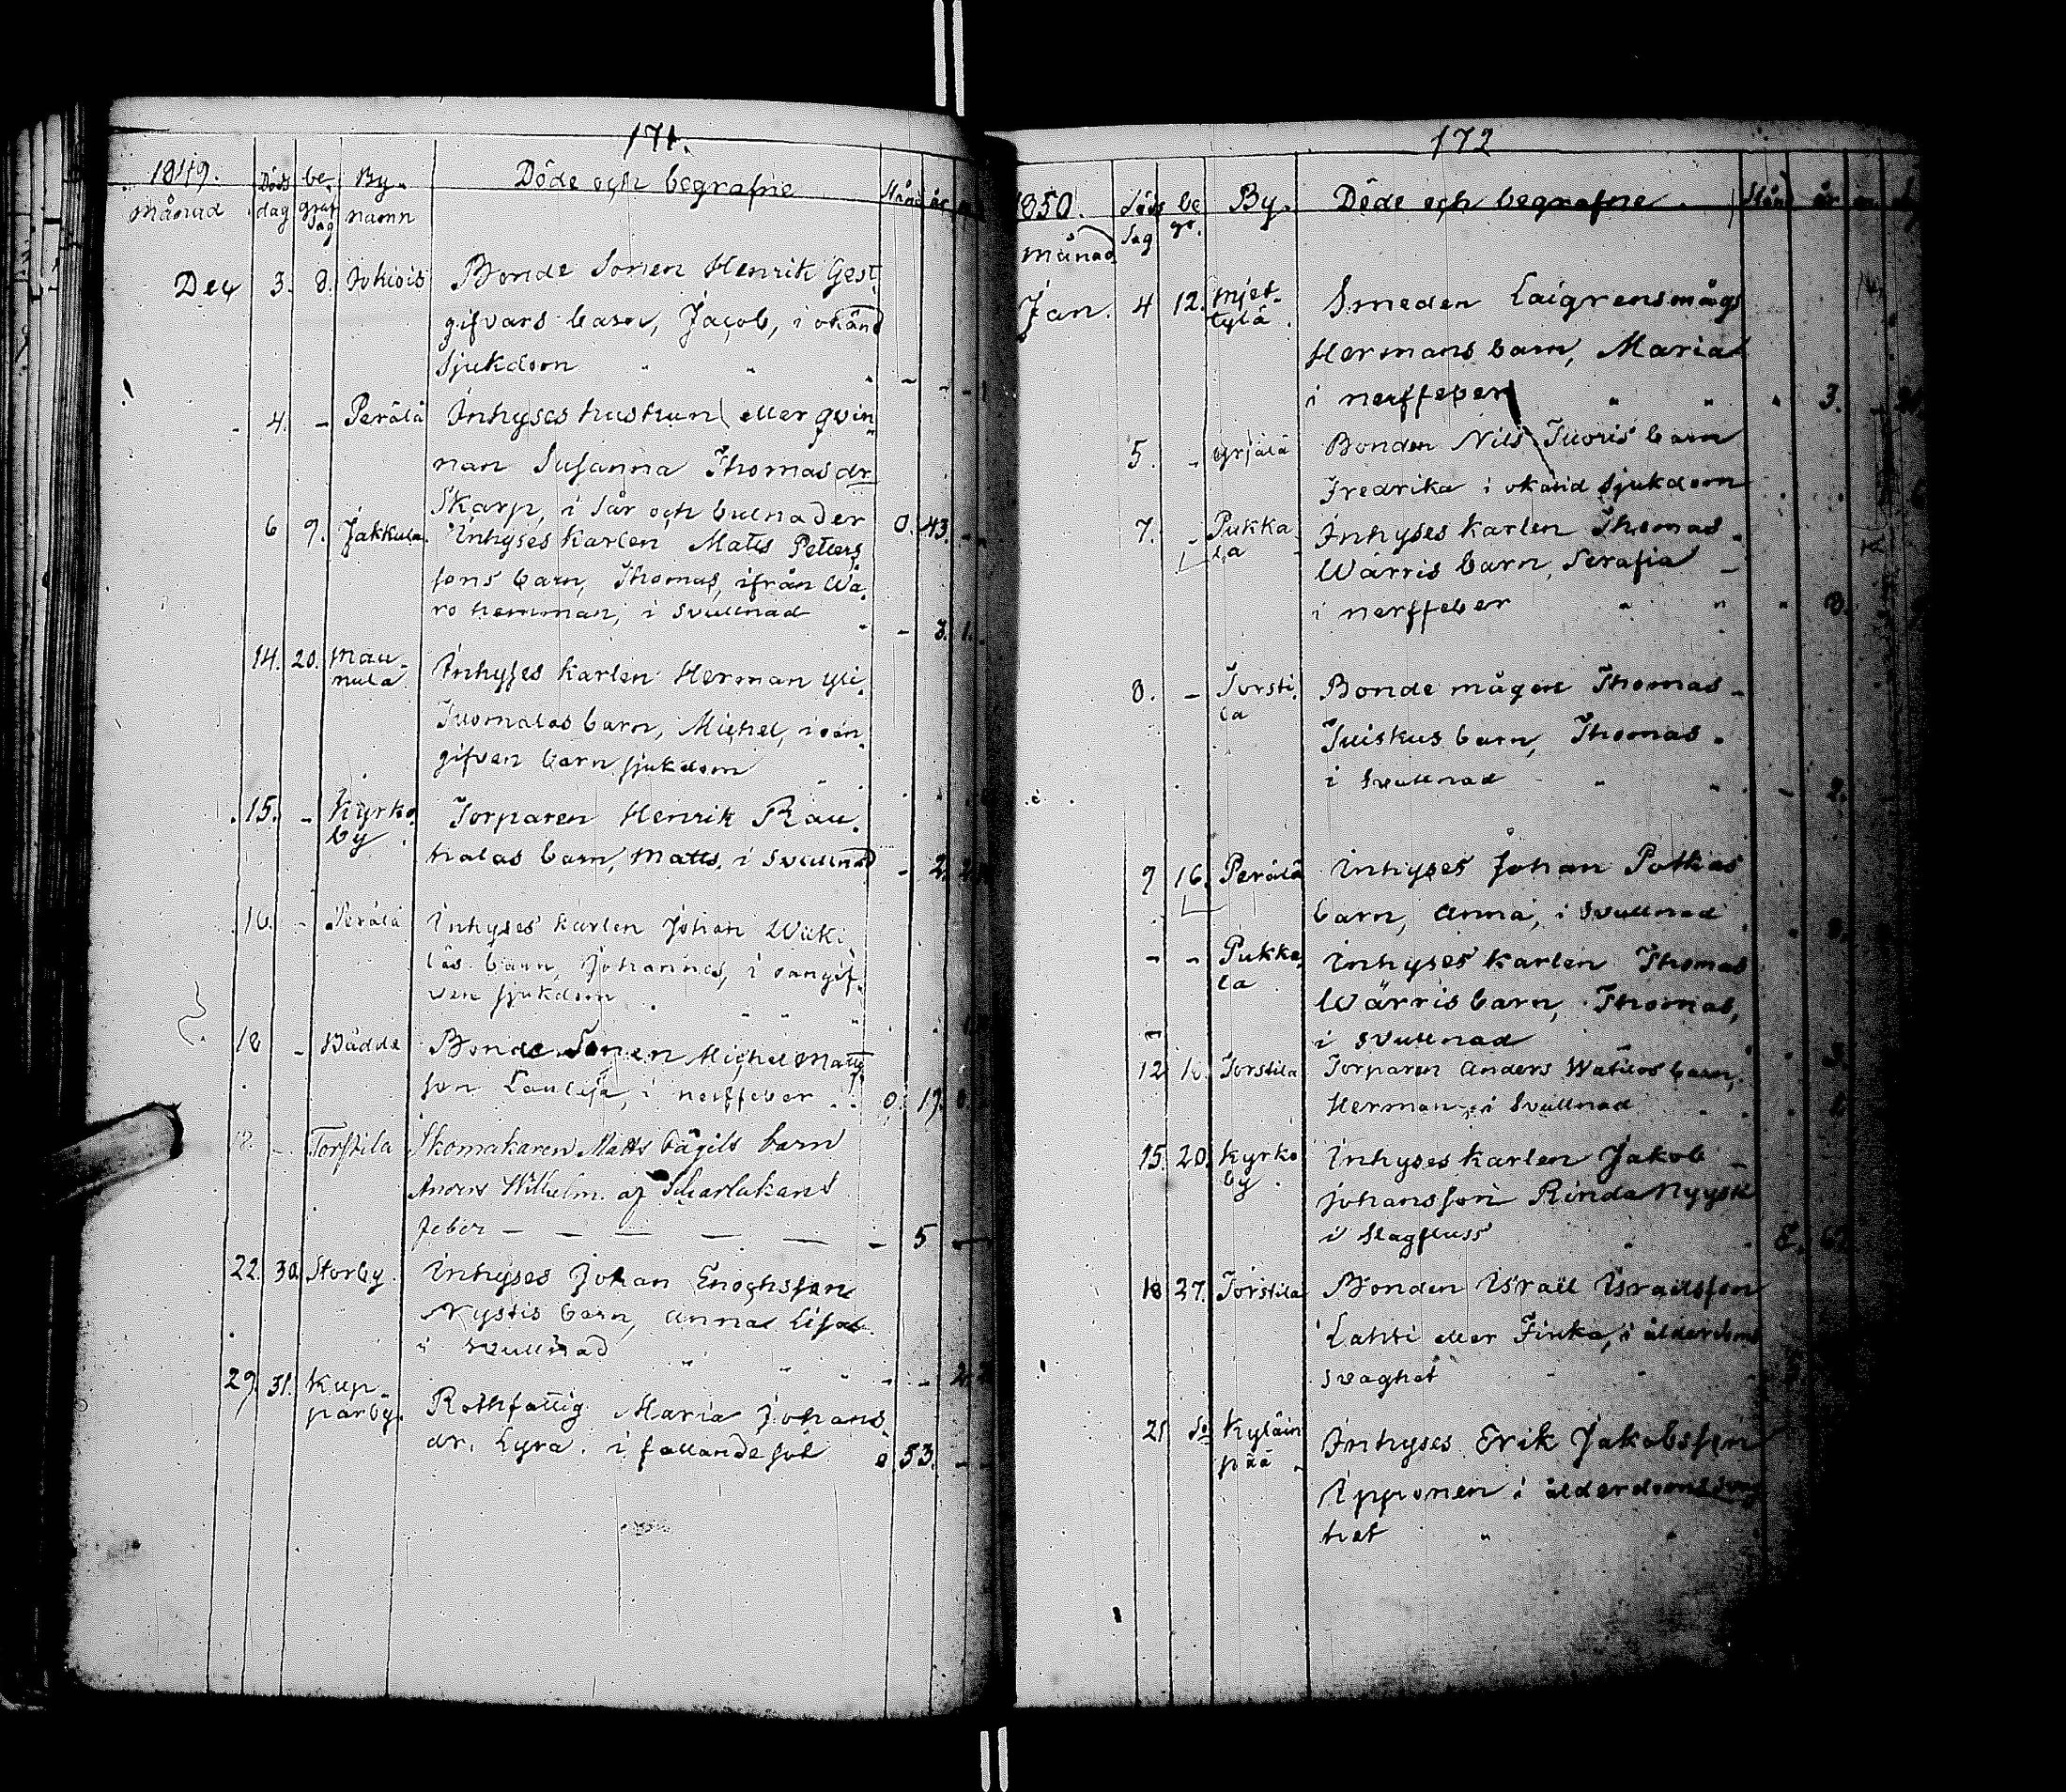 171.
1849. Döds be- By- Döde och begrafne Stånd år
månad dag graf dag namn
Dec 3. 8. Jokiois Bonde Sonen Henrik Gest
gifvars barn, Jacob, i okänd
sjukdom
4. - Perälä Inhyses hustrun eller qvin-
nan Susanna Thomasdr
Skarp, i Sår och bulnader 0. 43.
6 9. Jakkula. Inhyses karlen Matts Petters
sons barn, Thomas, ifrån Wa-
ro hemman, i svullnad - 3. 1.
14. 20. Mau- Inhyses karlen Herman Yli
nula
Tuomalas barn, Michel, i oan-
gifven barn sjukdom
15. - Kyrko Torparen Henrik Rau-
by
halas barn, Matts, i svullnad - 2.
16. - Perälä Inhyses karlen Johan Wäki
läs barn, Johannes, i oangif-
ven sjukdom
18 - Bådde Bonde Sonen Michel Matts
son Laulaja, i nerffeber 0. 19.
18. - Torstila Skomakaren Matts Bägils barn
Anders Wilhelm af Scharlakans
feber - - - - - - 5 -
22. 30. Storby. Inhyses Johan Enochsson
Nystis barn, Anna Lisa
i svullnad
29. 31. Kup- Rothfattig Maria Johans
parby. dr. Lyra. i fallande sot 0. 53. - -
172
1850. Döds be By. Döde och begrafne. Stånd år
månad dag gr.
Jan. 4 12. Mjet- Smeden Laigrens mågs
tylä.
Hermans barn, Maria
i nerffeber 3.
5. - Yrjälä Bonden Nils Tuoris barn
Fredrika i okänd sjukdom
7. - Pukka Inhyses karlen Thomas
la Wärris barn, Serafia -
i nerffeber 3.
8. - Torsti- Bonde mågen Thomas -
la
Tuiskus barn, Thomas.
i svullnad - 2.
9 16. Perälä Inhyses Johan Potkas
barn, Anna, i svullnad
- - Pukka- Inhyses karlen Thomas
la. Wärris barn, Thomas,
i svullnad
12 18. Torstila Torparen Anders Watilas barn,
Herman, i svullnad
15. 20. Kyrko Inhyses karlen Jakob -
by. Johansson Rinda Nyysti
i slagfluss E. 62
18 27. Torstila Bonden Israel Israelsson
Lahti eller Finka, i ålderdoms
svaghet
21 do Kyläin Inhyses Erik Jakobsson
pää -
Ipponen i ålderdomssvag
het